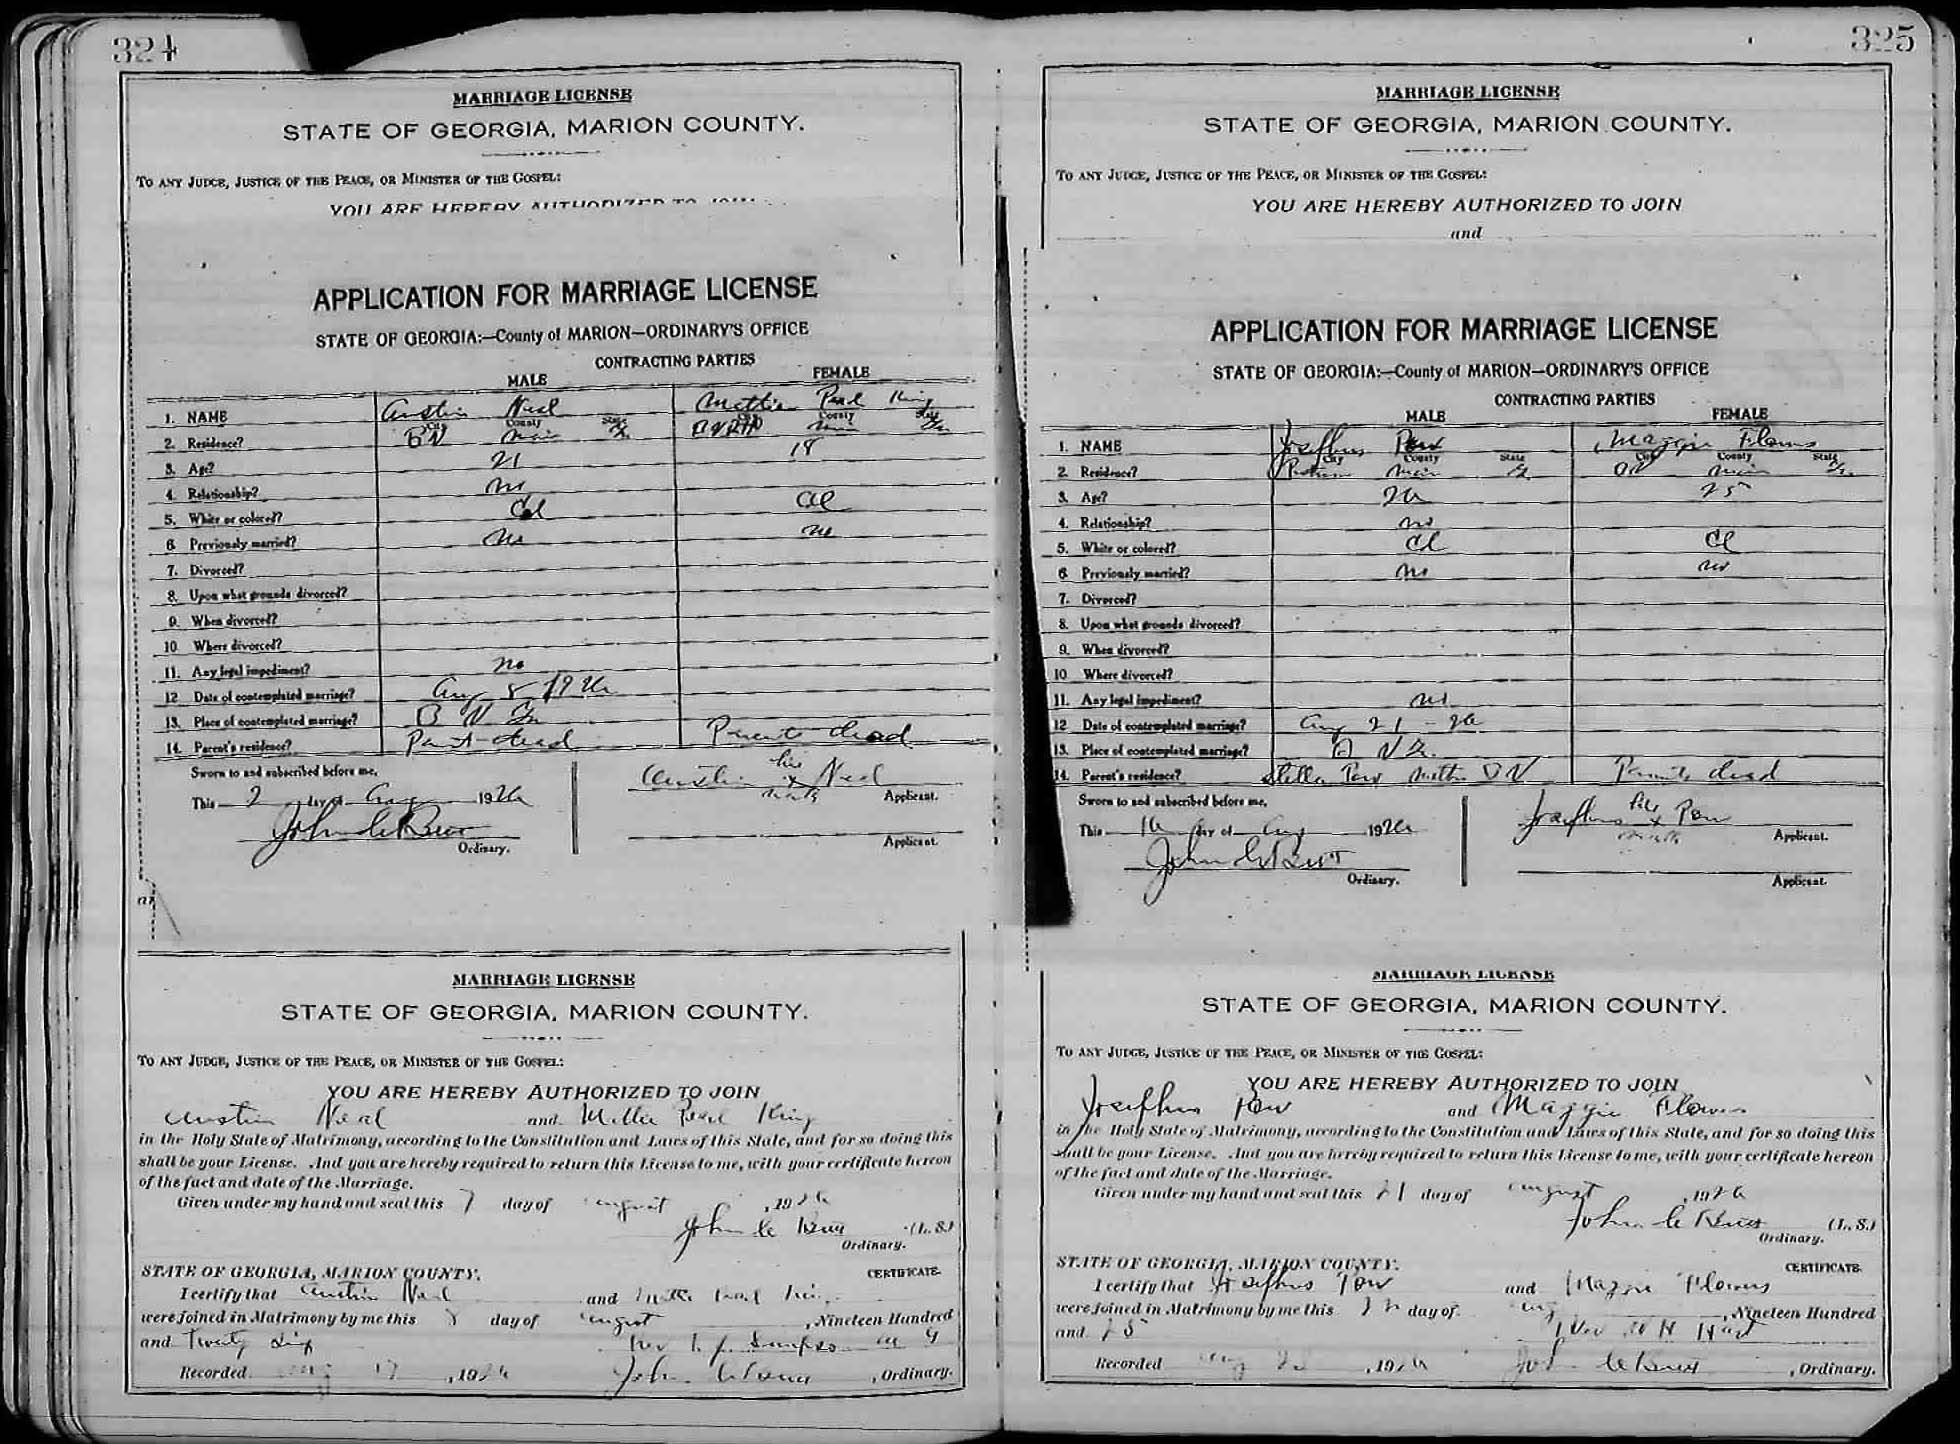 324
MARRIAGE LICENSE
STATE OF GEORGIA, MARION COUNTY.
TO ANY JUDGE, JUSTICE OF THE PEACE, OR MINISTER OF THE GOSPEL:
YOU ARE HEREBY AUTHORIZED TO JOIN
APPLICATION FOR MARRIAGE LICENSE
STATE OF GEORGIA:—County of MARION—ORDINARY'S OFFICE
CONTRACTING PARTIES
MALE FEMALE
1. NAME Austin Neal Mattie Pearl King
City County State City County State
2. Residence? B V
3. Age? 21 18
4. Relationship? no
5. White or colored? Col Col
6. Previously married? no no
7. Divorced?
8. Upon what grounds divorced?
9. When divorced?
10. Where divorced?
11. Any legal impediment? no
12. Date of contemplated marriage? Aug 8 1926
13. Place of contemplated marriage? B V Ga
14. Parent's residence? Parents dead
Sworn to and subscribed before me,
This 2 day of Aug 1926
John C Butt
Ordinary.
Austin his x mark Neal
Applicant.
Applicant.
MARRIAGE LICENSE
STATE OF GEORGIA, MARION COUNTY.
TO ANY JUDGE, JUSTICE OF THE PEACE, OR MINISTER OF THE GOSPEL:
YOU ARE HEREBY AUTHORIZED TO JOIN
Austin Neal and Mattie Pearl King
in the Holy State of Matrimony, according to the Constitution and Laws of this State, and for so doing this
shall be your License. And you are hereby required to return this License to me, with your certificate hereon
of the fact and date of the Marriage.
Given under my hand and seal this 7 day of August, 1926
John C Butt (L. S.)
Ordinary.
STATE OF GEORGIA, MARION COUNTY. CERTIFICATE.
I certify that Austin Neal and Mattie Pearl King
were joined in Matrimony by me this 8 day of August, Nineteen Hundred
and Twenty Six Rev Simpson M G
Recorded Aug 17, 1926 John C Butt, Ordinary.
325
MARRIAGE LICENSE
STATE OF GEORGIA, MARION COUNTY.
TO ANY JUDGE, JUSTICE OF THE PEACE, OR MINISTER OF THE GOSPEL:
YOU ARE HEREBY AUTHORIZED TO JOIN
and
APPLICATION FOR MARRIAGE LICENSE
STATE OF GEORGIA:—County of MARION—ORDINARY'S OFFICE
CONTRACTING PARTIES
MALE FEMALE
1. NAME Josephus Pow Maggie Flowers
City County State City County State
2. Residence?
3. Age? 26 25
4. Relationship? no
5. White or colored? Cl Cl
6. Previously married? no no
7. Divorced?
8. Upon what grounds divorced?
9. When divorced?
10. Where divorced?
11. Any legal impediment? no
12. Date of contemplated marriage? Aug 21 - 26
13. Place of contemplated marriage? B V Ga
14. Parent's residence? Stella Pow Mother B V Parents dead
Sworn to and subscribed before me,
This 16 day of Aug 1926
John C Butt
Ordinary.
Josephus his x mark Pow
Applicant.
Applicant.
MARRIAGE LICENSE
STATE OF GEORGIA, MARION COUNTY.
TO ANY JUDGE, JUSTICE OF THE PEACE, OR MINISTER OF THE GOSPEL:
YOU ARE HEREBY AUTHORIZED TO JOIN
Josephus Pow and Maggie Flowers
in the Holy State of Matrimony, according to the Constitution and Laws of this State, and for so doing this
shall be your License. And you are hereby required to return this License to me, with your certificate hereon
of the fact and date of the Marriage.
Given under my hand and seal this 21 day of August, 1926
John C Butt (L. S.)
Ordinary.
STATE OF GEORGIA, MARION COUNTY. CERTIFICATE.
I certify that Josephus Pow and Maggie Flowers
were joined in Matrimony by me this day of Aug, Nineteen Hundred
and 25 Rev W H Hart
Recorded Aug, 1926 John C Butt, Ordinary.